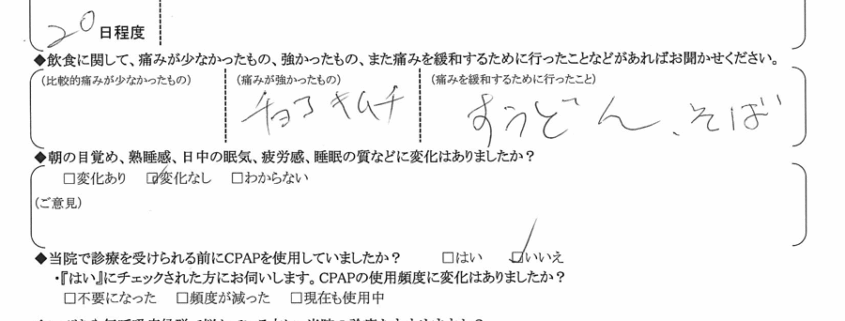 20日程度
◆飲食に関して、痛みが少なかったもの、強かったもの、また痛みを緩和するために行ったことなどがあればお聞かせください。
(比較的痛みが少なかったもの) (痛みが強かったもの) (痛みを緩和するために行ったこと)
チョコ キムチ すうどん、そば
◆朝の目覚め、熟睡感、日中の眠気、疲労感、睡眠の質などに変化はありましたか？
□変化あり ☑変化なし □わからない
(ご意見)
◆当院で診療を受けられる前にCPAPを使用していましたか？ □はい ☑いいえ
・『はい』にチェックされた方にお伺いします。CPAPの使用頻度に変化はありましたか？
□不要になった □頻度が減った □現在も使用中